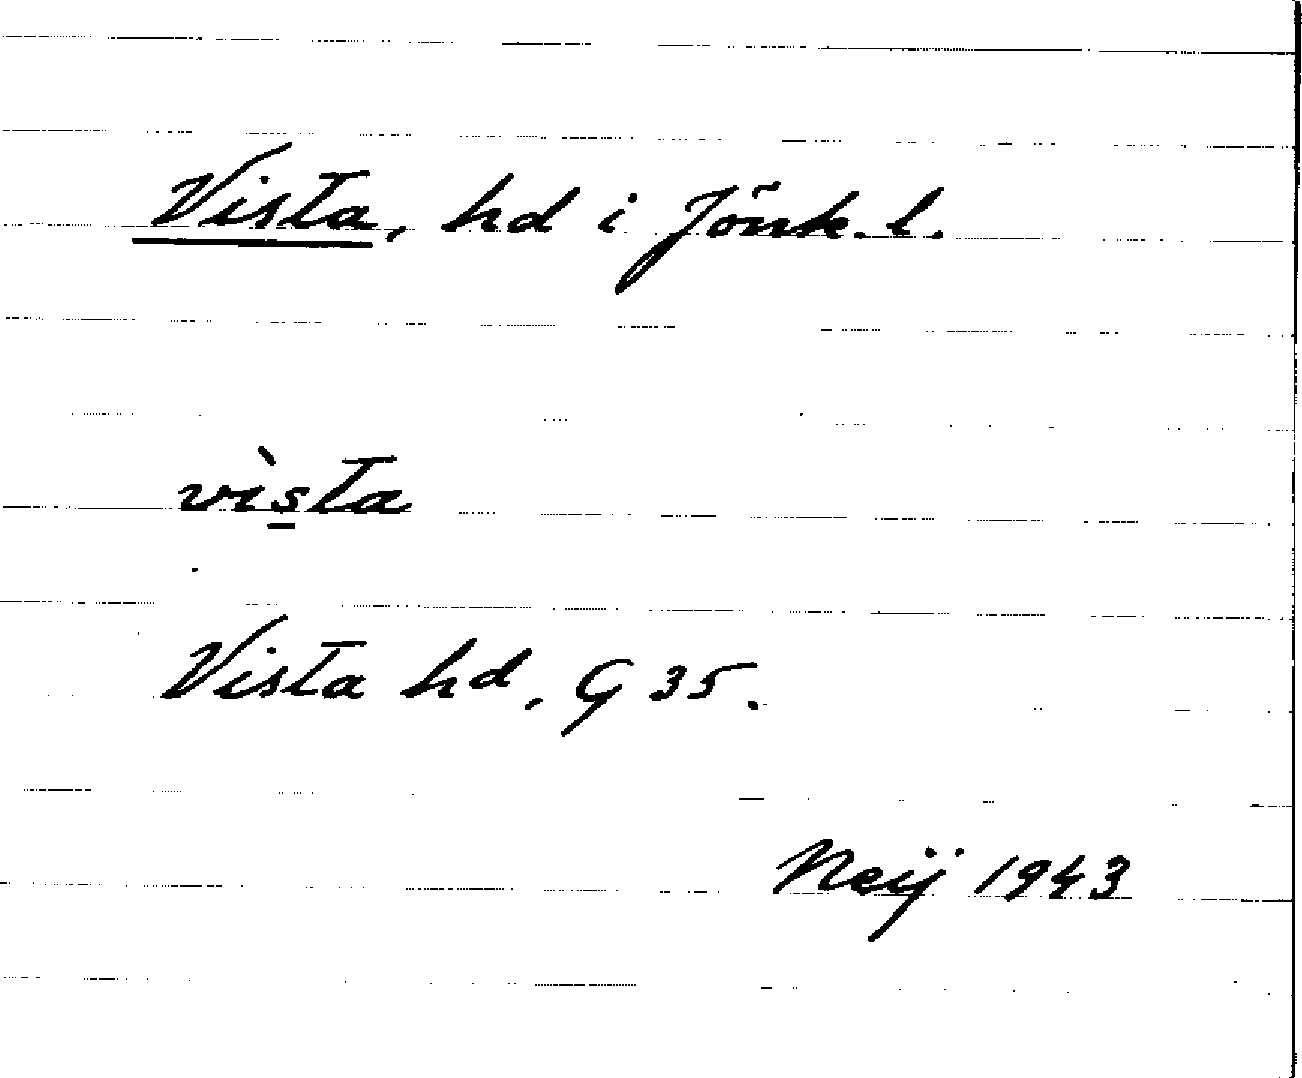 Vista, hd i Jönk. l.
vìs̲ta
Vista hd, G 35.
Neij 1943